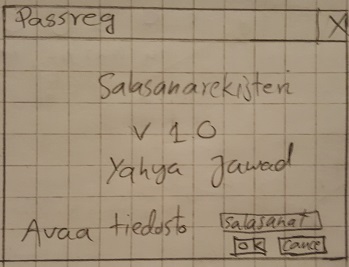 Passreg X
Salasanarekisteri
v 1.0
Yahya Jawad
Avaa tiedosto salasanat
OK Cancel